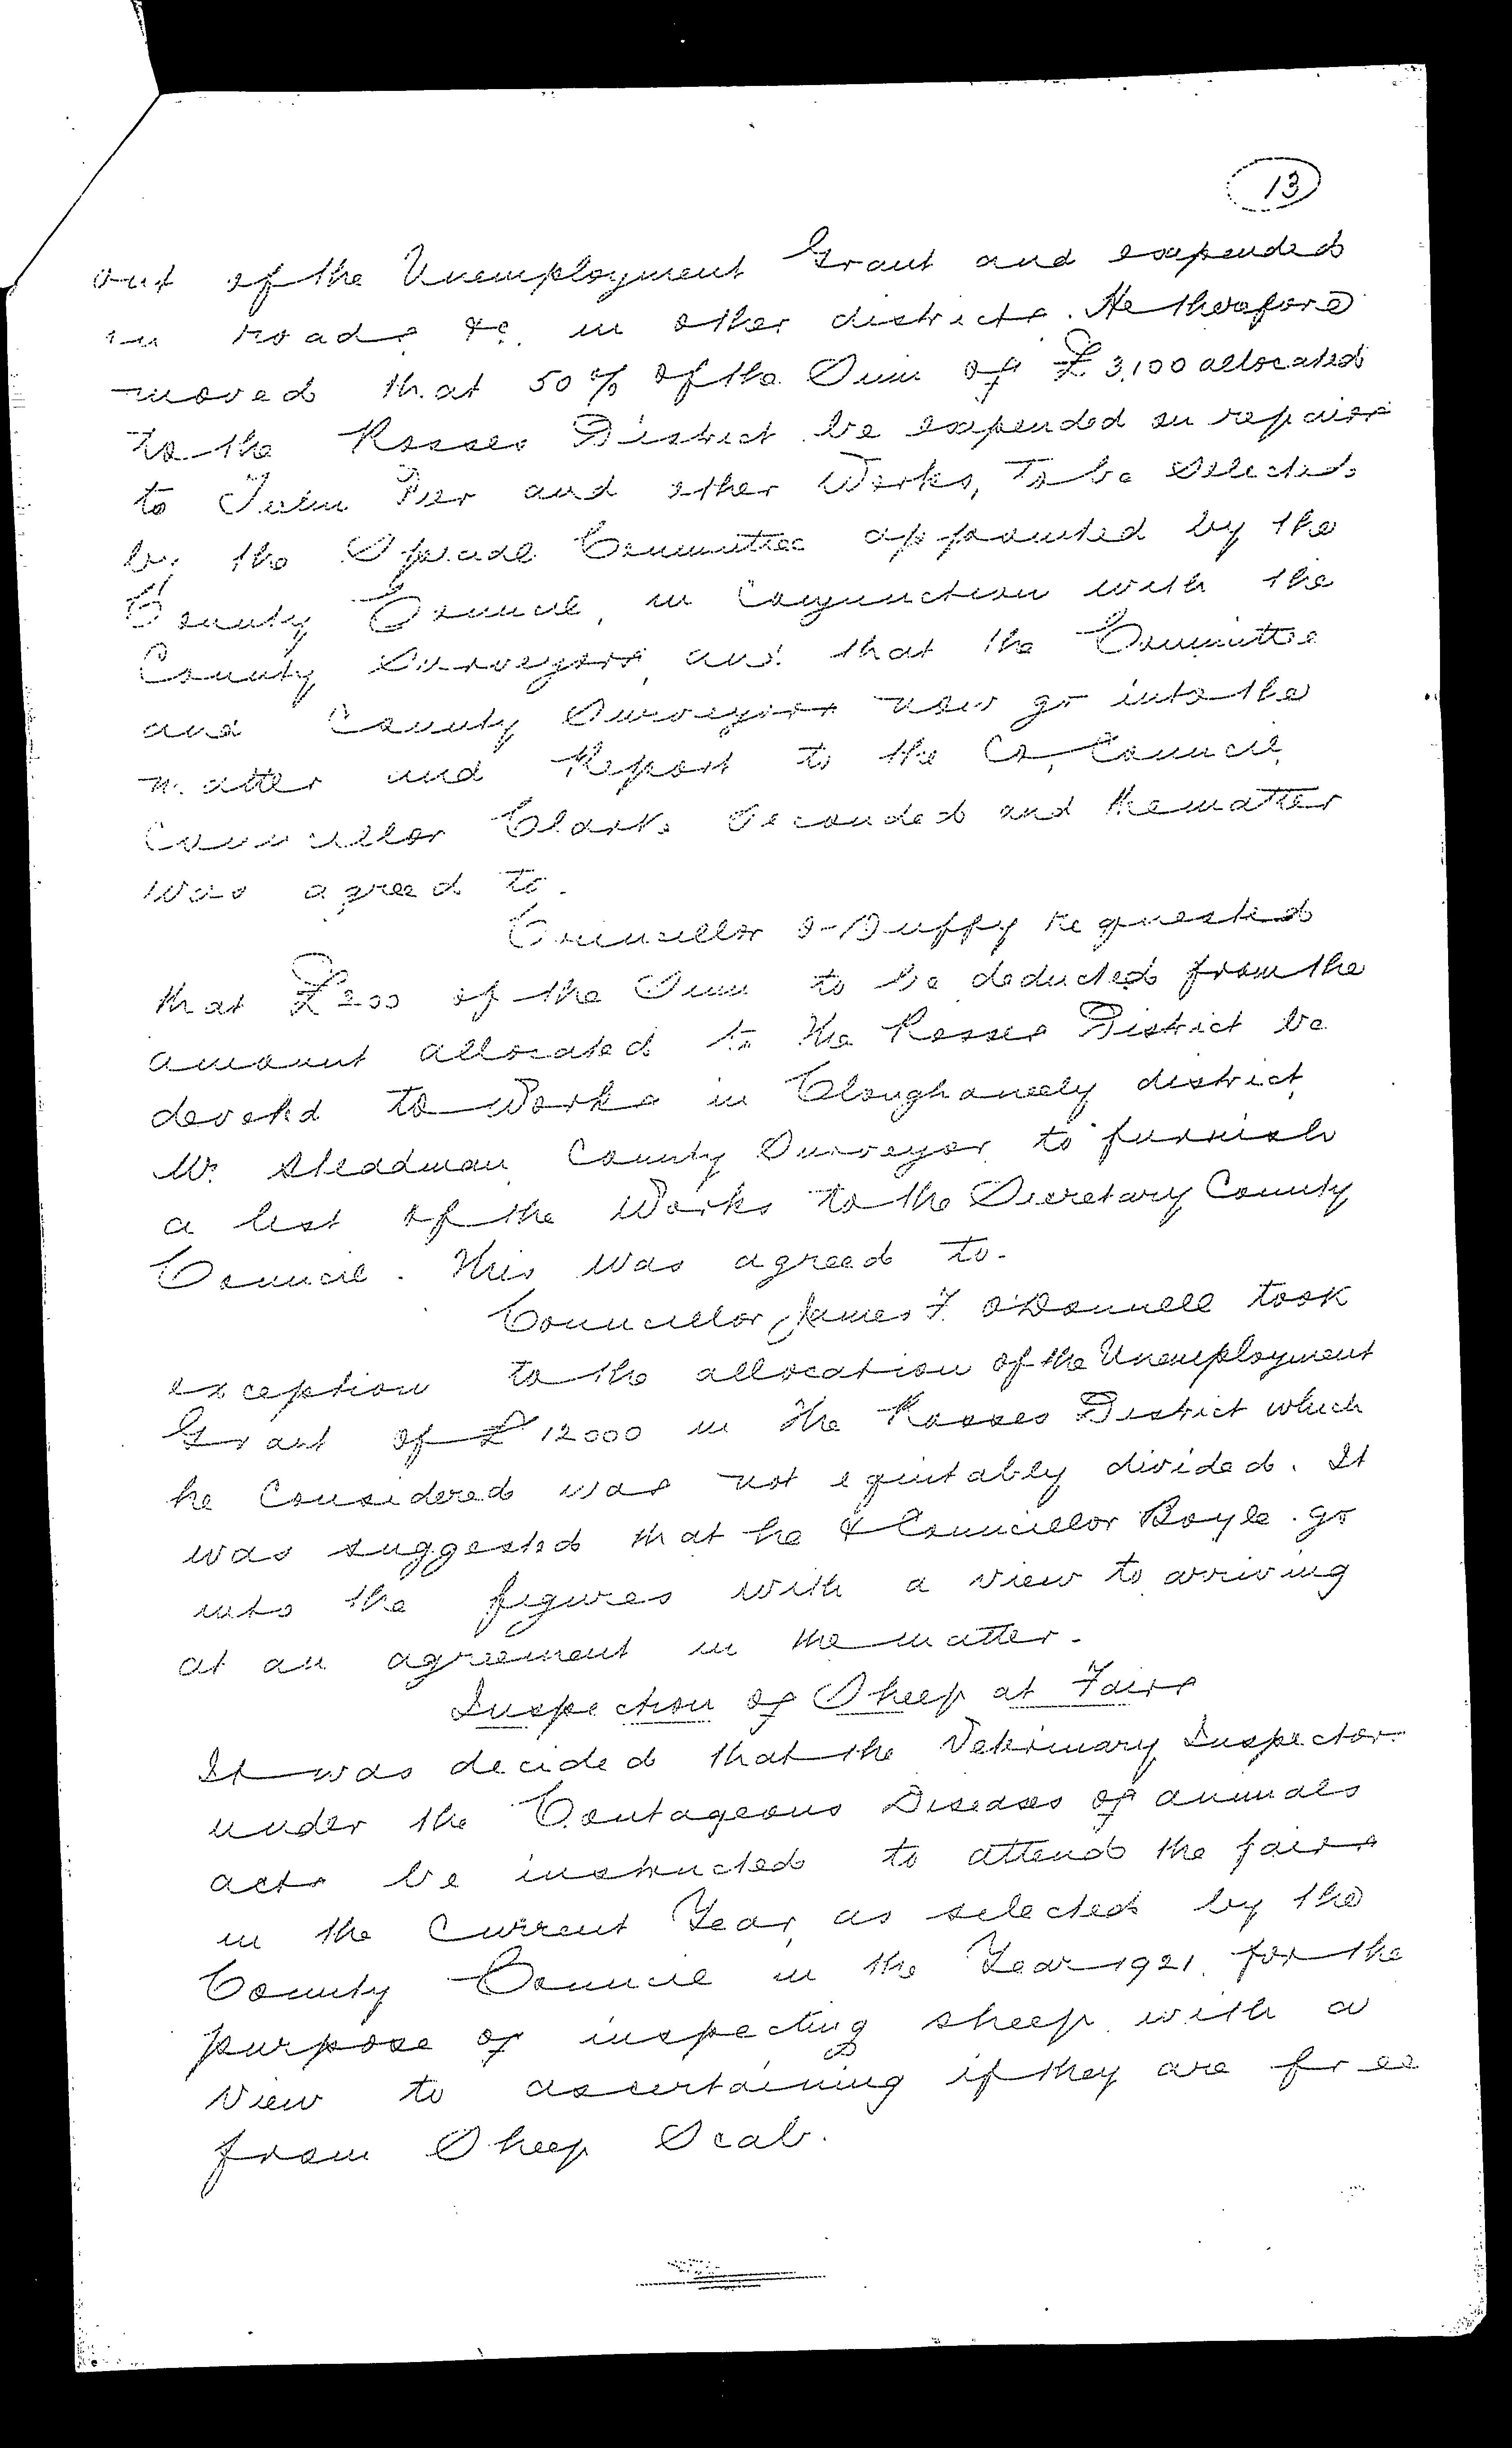 13
out of the Unemployment Grant and expended
in roads &c. in other districts. He therefore
moved that 50% of the Sum of £3,100 allocated
to the Rosses District be expended on repairs
to Pier and other Works, to be selected
by the Special Committee appointed by the
County Council, in conjunction with the
County Surveyors, and that the Committee
and County Surveyors now go into the
matter and Report to the Co. Council.
Councillor Clarke seconded and the matter
was agreed to.
Councillor O'Duffy requested
that £200 of the Sum to be deducted from the
amount allocated to the Rosses District be
devoted to Works in Cloughaneely district,
Mr. Steadman County Surveyor to furnish
a list of the Works to the Secretary County
Council. This was agreed to.
Councillor James F. O'Donnell took
exception to the allocation of the Unemployment
Grant of £12000 in the Rosses District which
he considered was not equitably divided. It
was suggested that he & Councillor Boyle go
into the figures with a view to arriving
at an agreement in the matter.
Inspection of Sheep at Fairs
It was decided that the Veterinary Inspector
under the Contageous Diseases of animals
acts be instructed to attend the fairs
in the Current Year, as selected by the
County Council in the Year 1921, for the
purpose of inspecting sheep with a
view to ascertaining if they are free
from Sheep Scab.